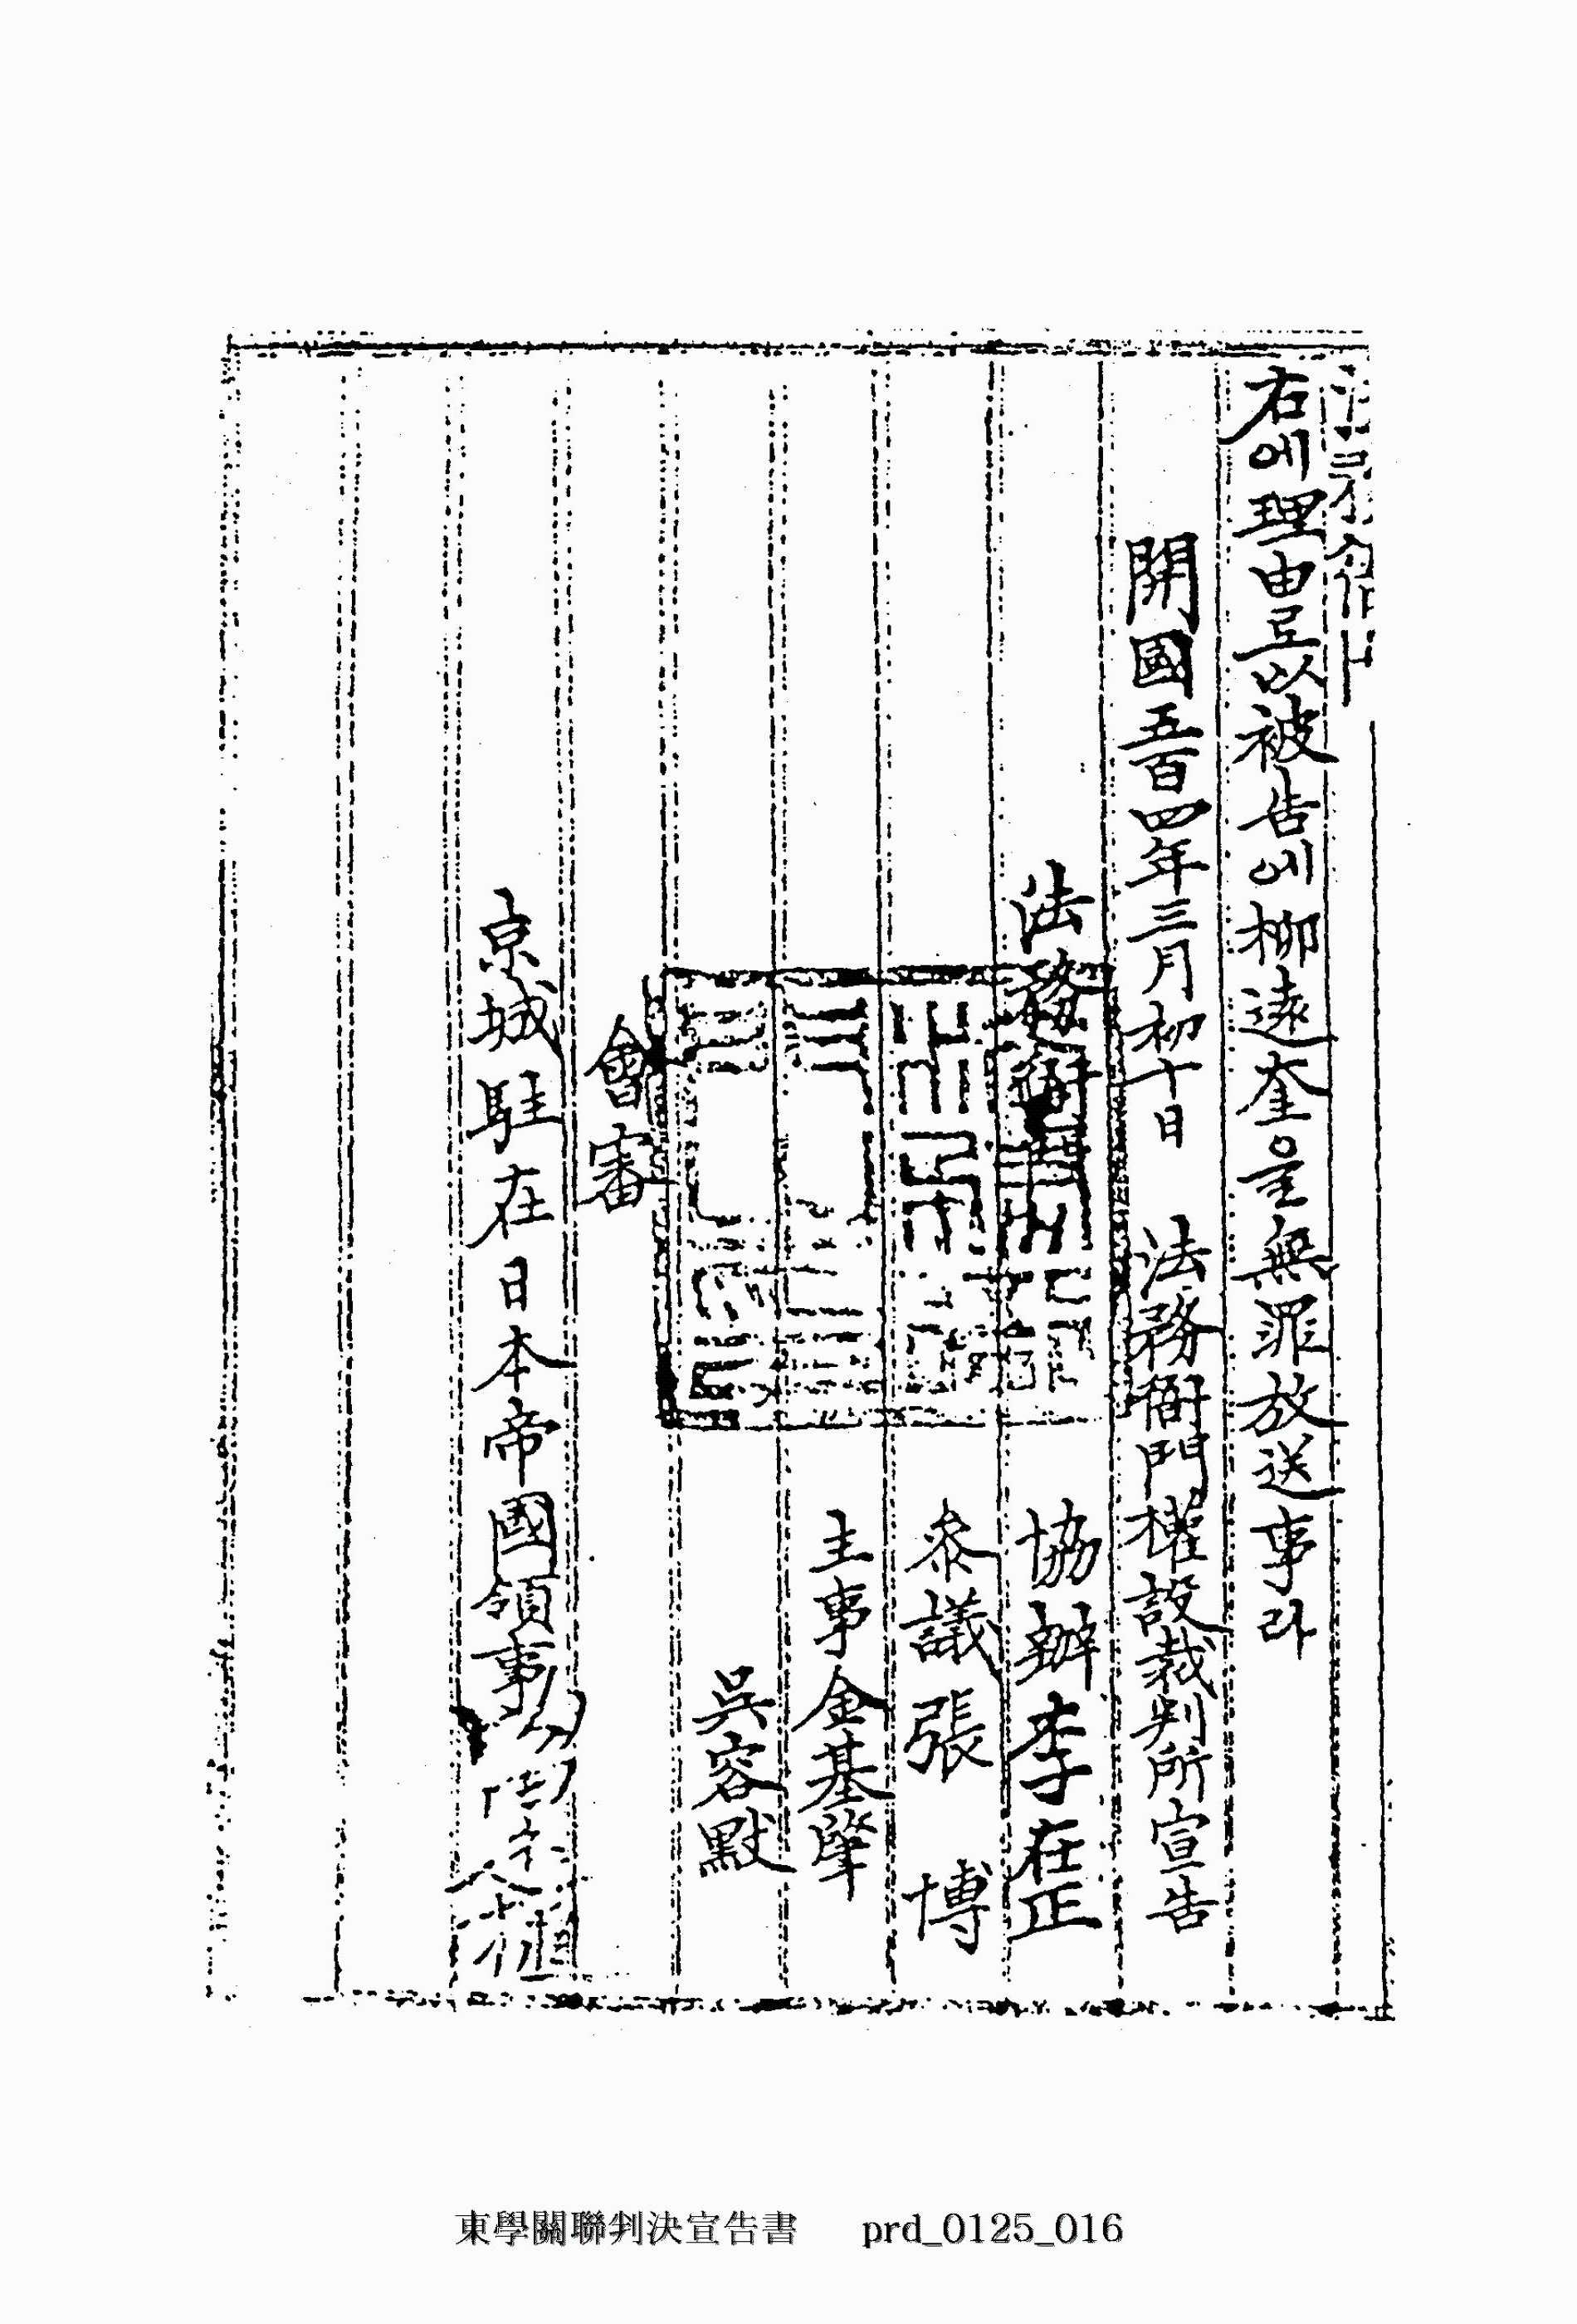 右에理由로以被告에柳遠奎을無罪放送事라
開國五百四年三月初十日 法務衙門權設裁判所宣告
法務衙門 協辦李在正
參議張 博
主事金基肇
吳容默
會審
京城駐在日本帝國領事
東學關聯判決宣告書 prd_0125_016